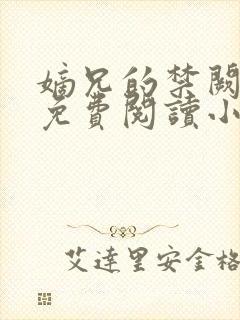 嫡兄的禁闕
免費閱讀小
艾達里安金格